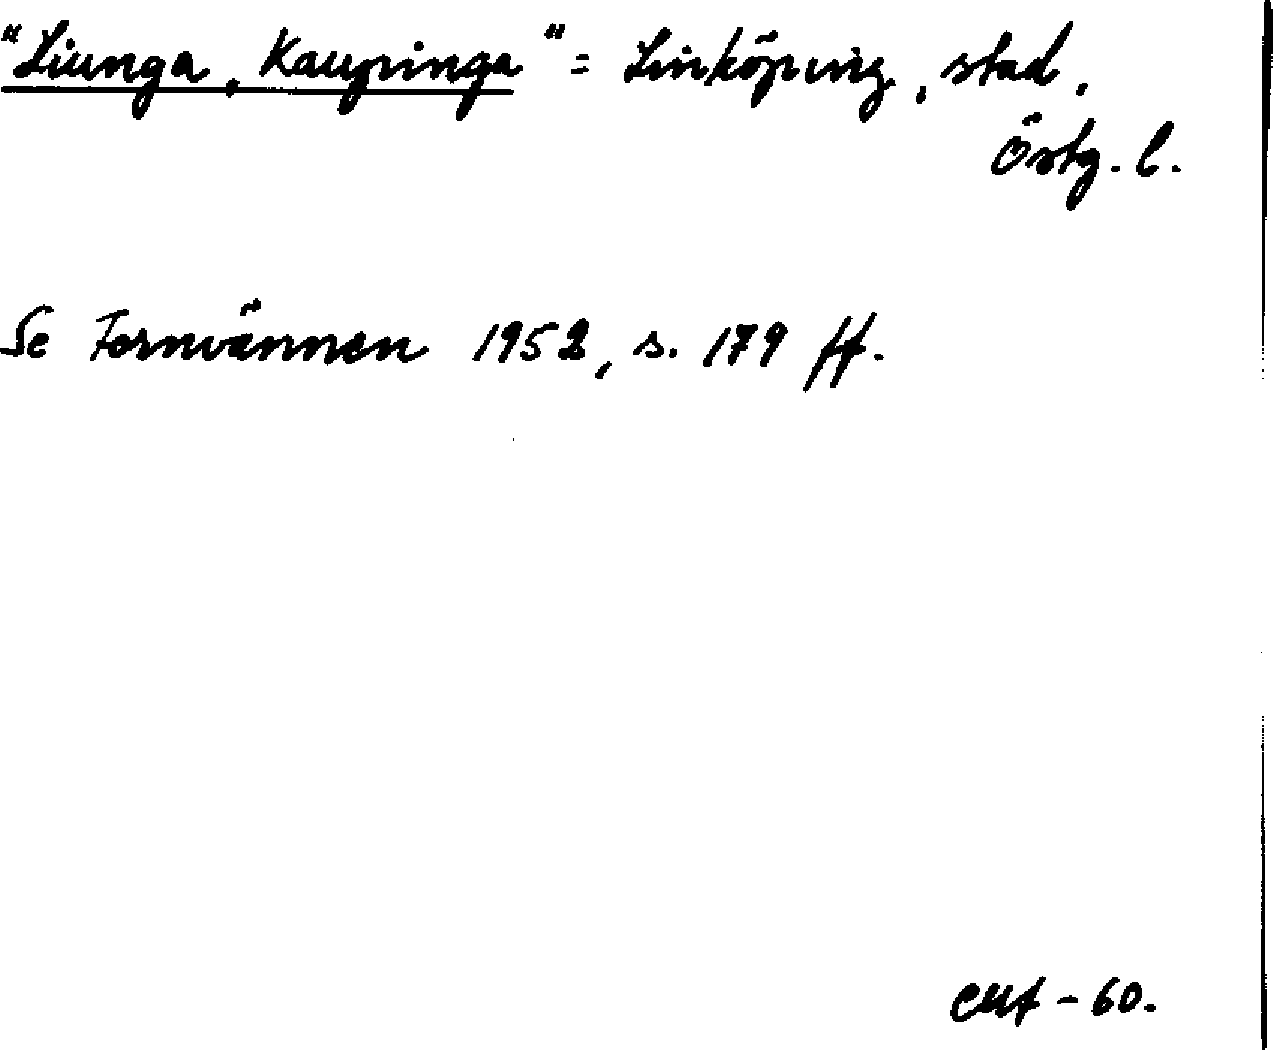 "Liunga, Kaupinga" = Linköping, stad,
Östg. l.
Se Fornvännen 1952, s. 179 ff.
-60.